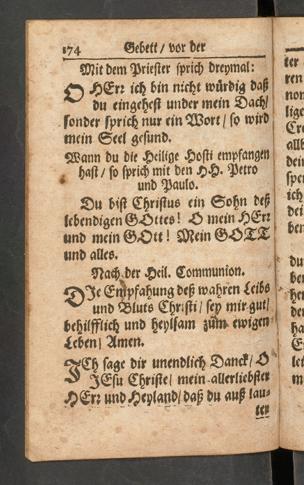 174 Gebett / vor der
Mit dem Priester sprich dreymal:
O HErr ich bin nicht würdig daß
du eingehest under mein Dach /
sonder sprich nur ein Wort / so wird
mein Seel gesund.
Wann du die Heilige Hosti empfangen
hast / so sprich mit den H.H. Petro
und Paulo.
Du bist Christus ein Sohn deß
lebendigen GOttes! O mein HErr
und mein GOtt! Mein GOTT
und alles.
Nach der Heil. Communion.
DIe Empfahung deß wahren Leibs
und Bluts Christi / sey mir gut /
behilfflich und heylsam zum ewigen
Leben / Amen.
JCh sage dir unendlich Danck / O
JEsu Christe / mein allerliebster
HErr und Heyland / daß du auß lau-
ter